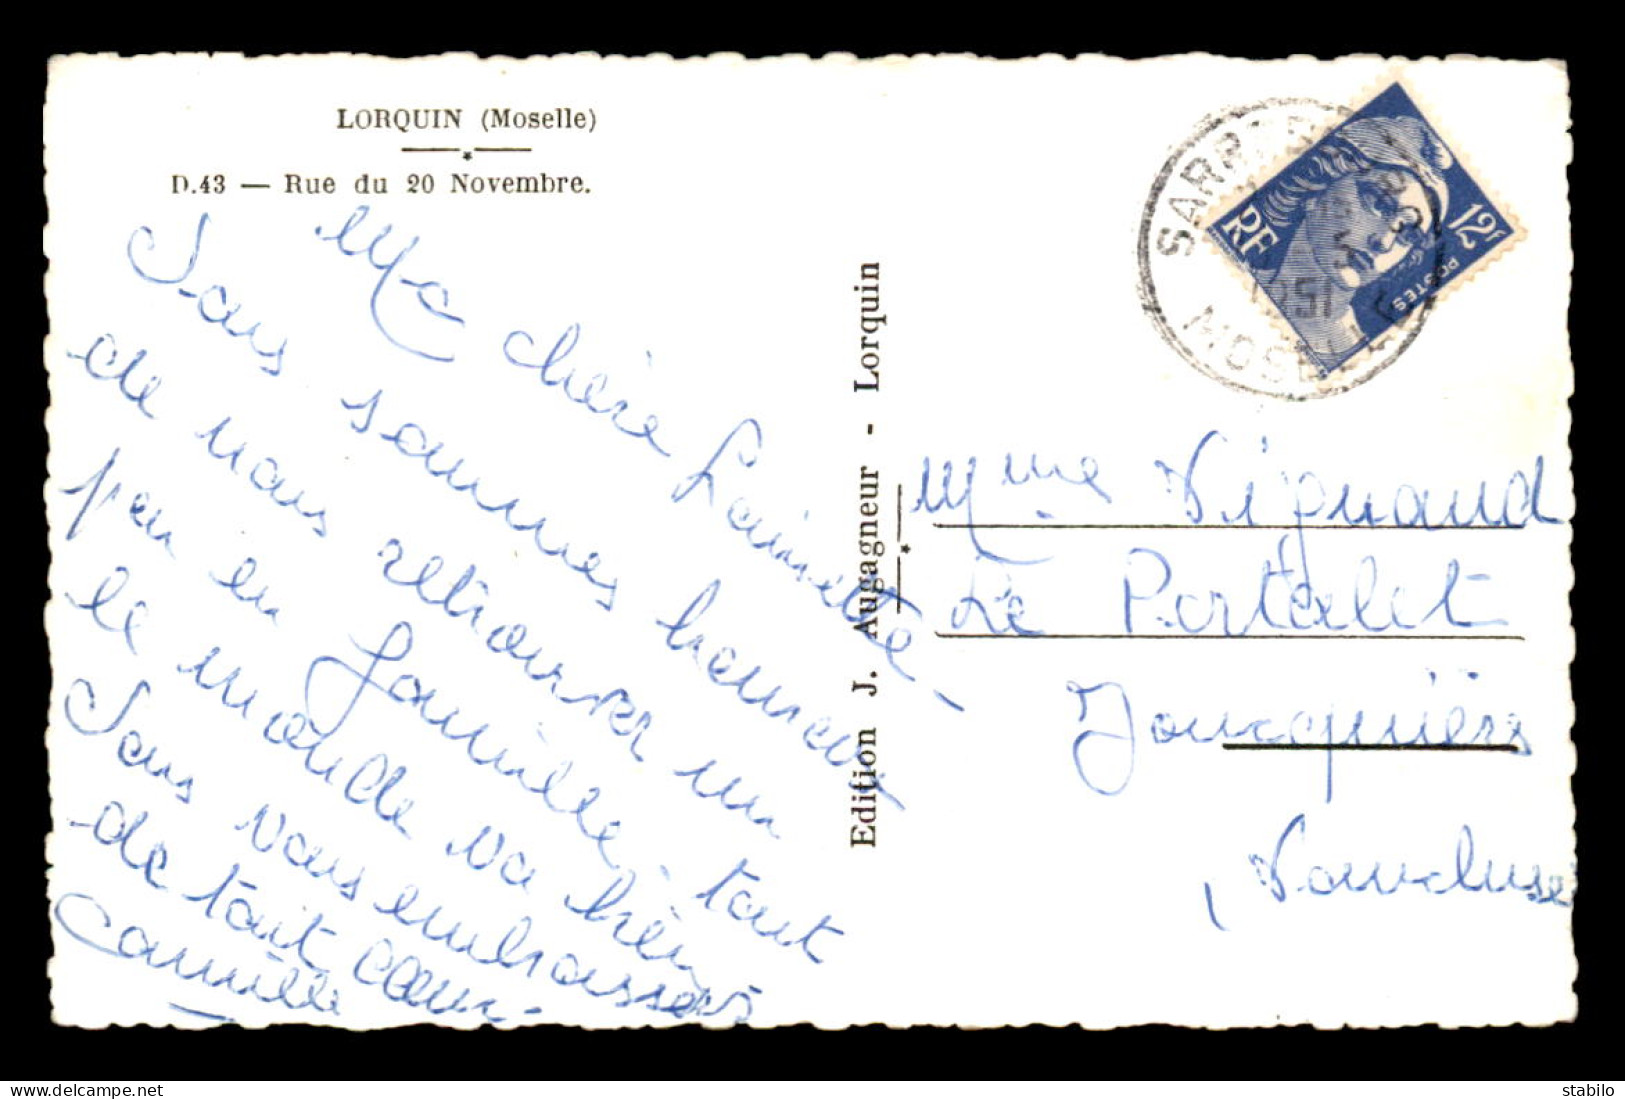 LORQUIN (Moselle)
D.43 — Rue du 20 Novembre.
Ma chère
Nous sommes heureux
de nous retrouver un
peu en famille, tout
le monde va bien
Nous vous embrassons
de tout cœur.
Camille
Edition J. Augagneur - Lorquin
Mme Vignaud
Le Portalet
Jonquières
Vaucluse
RF
12F
POSTES
1951
MOSELLE
stabilo